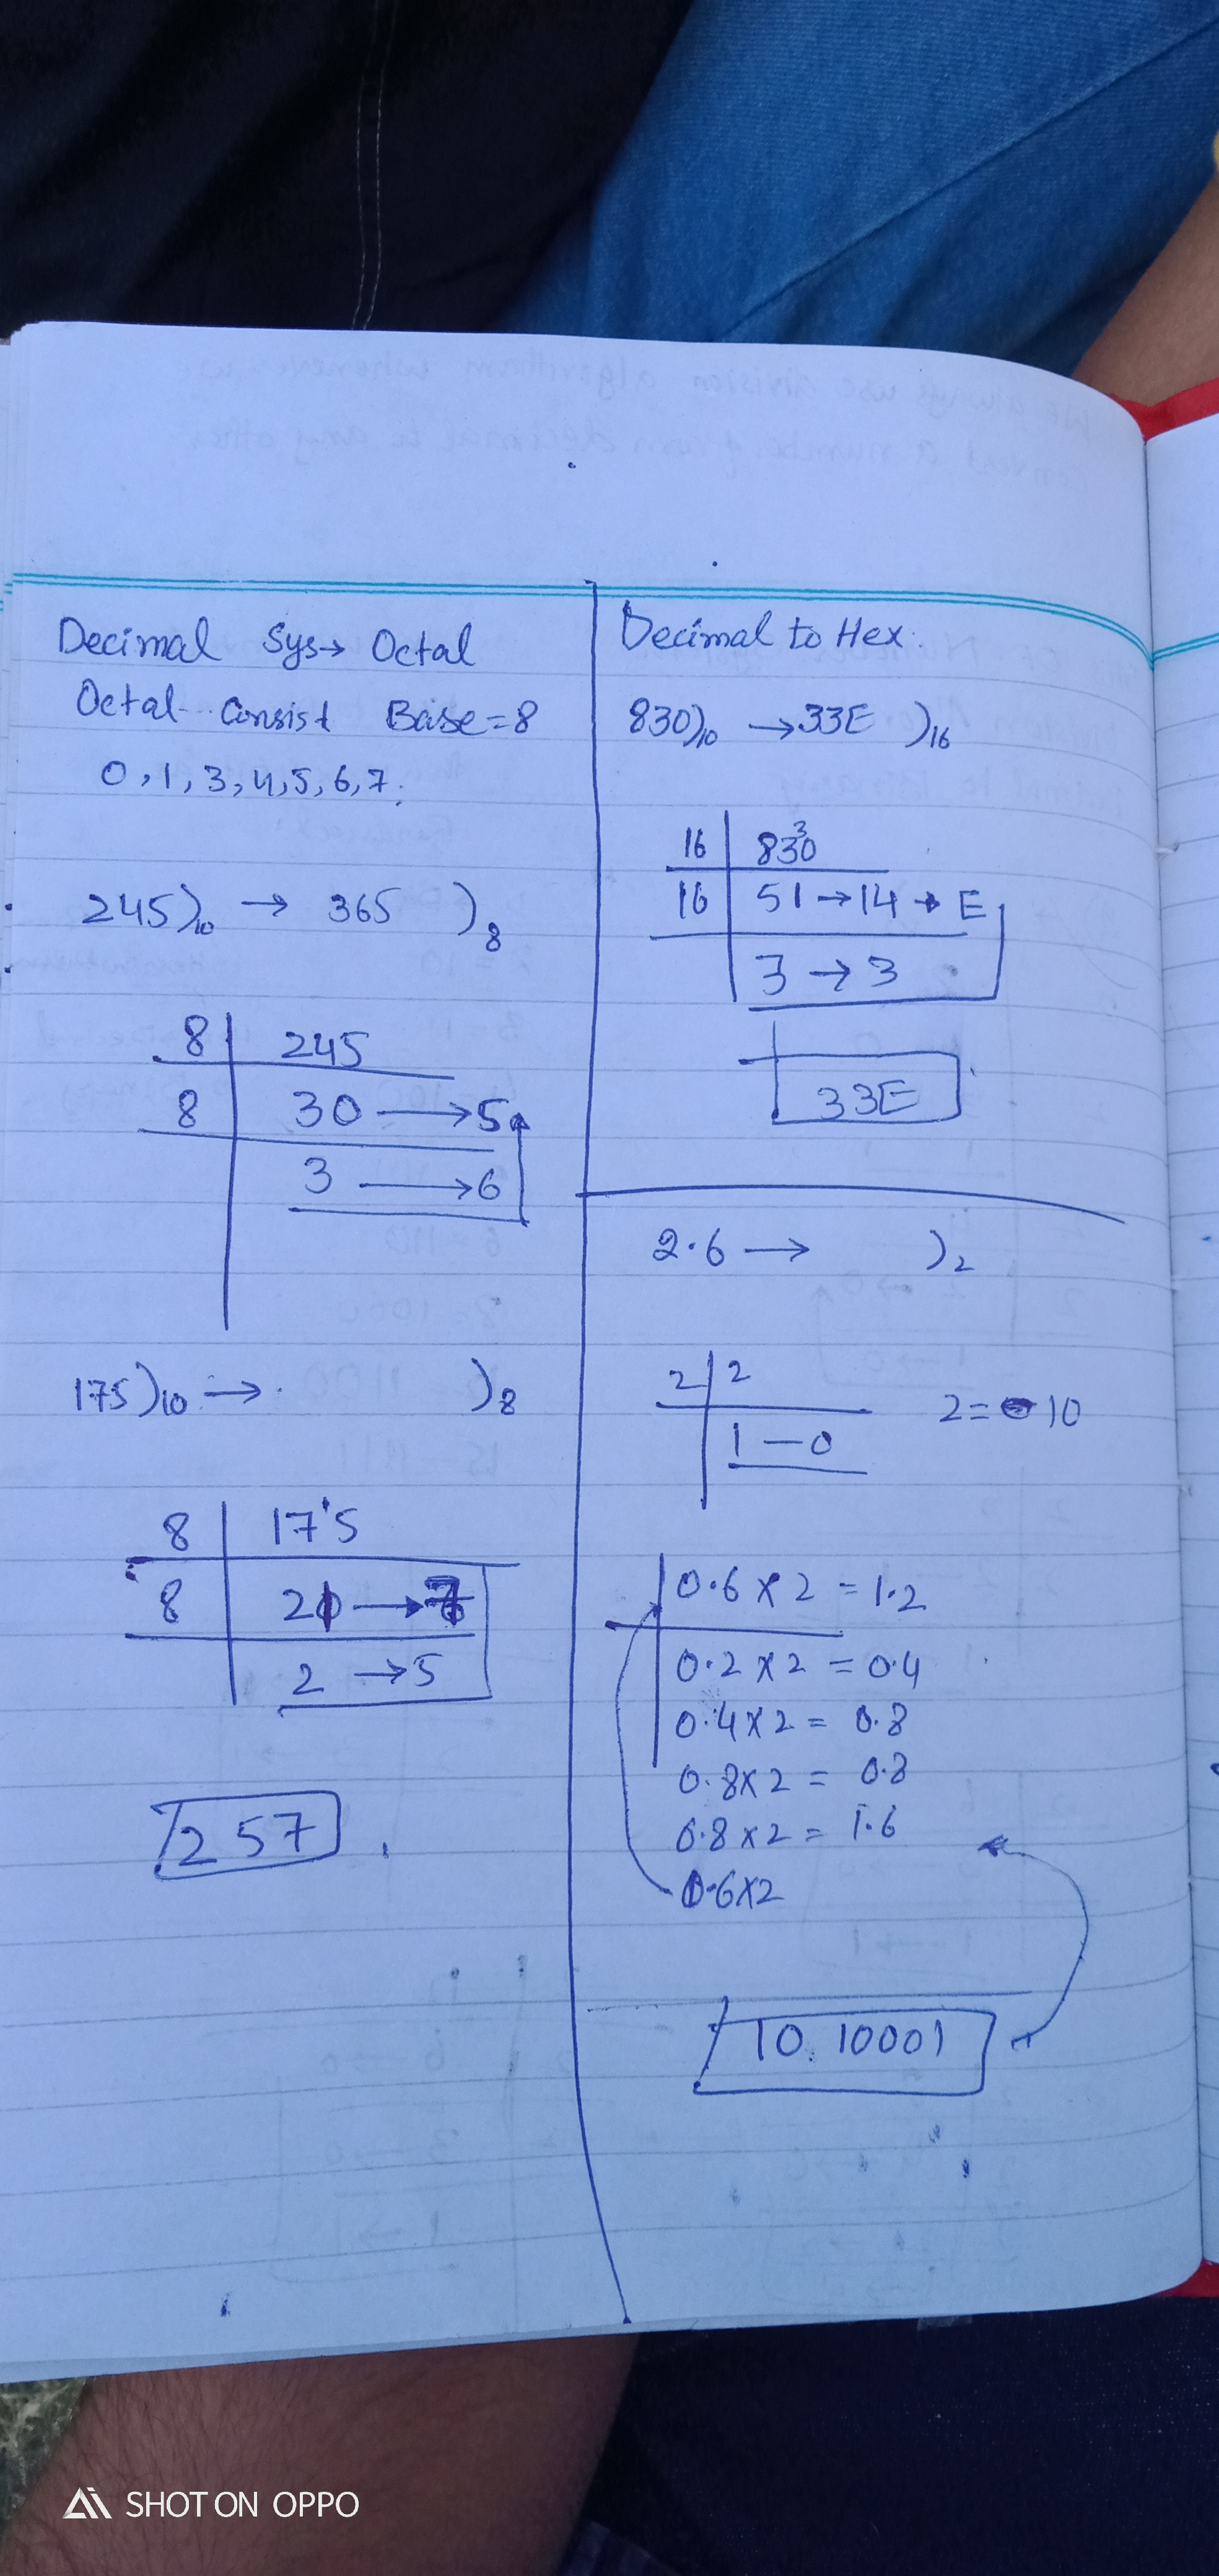 Decimal Sys→ Octal
Octal Consist Base=8
0,1,3,4,5,6,7.
245)10 → 365 )8
8 245
8 30 → 5
3 → 6
175)10 → )8
8 175
8 21 → 7
2 → 5
257
Decimal to Hex.
830)10 → 33E )16
16 830
16 51→14→E
3 → 3
33E
2.6 → )2
2 2
1 — 0
2= 10
0.6 x 2 = 1.2
0.2 x 2 = 0.4
0.4 x 2 = 0.8
0.8 x 2 = 0.8
0.8 x 2 = 1.6
0.6 x 2
10.10001
SHOT ON OPPO